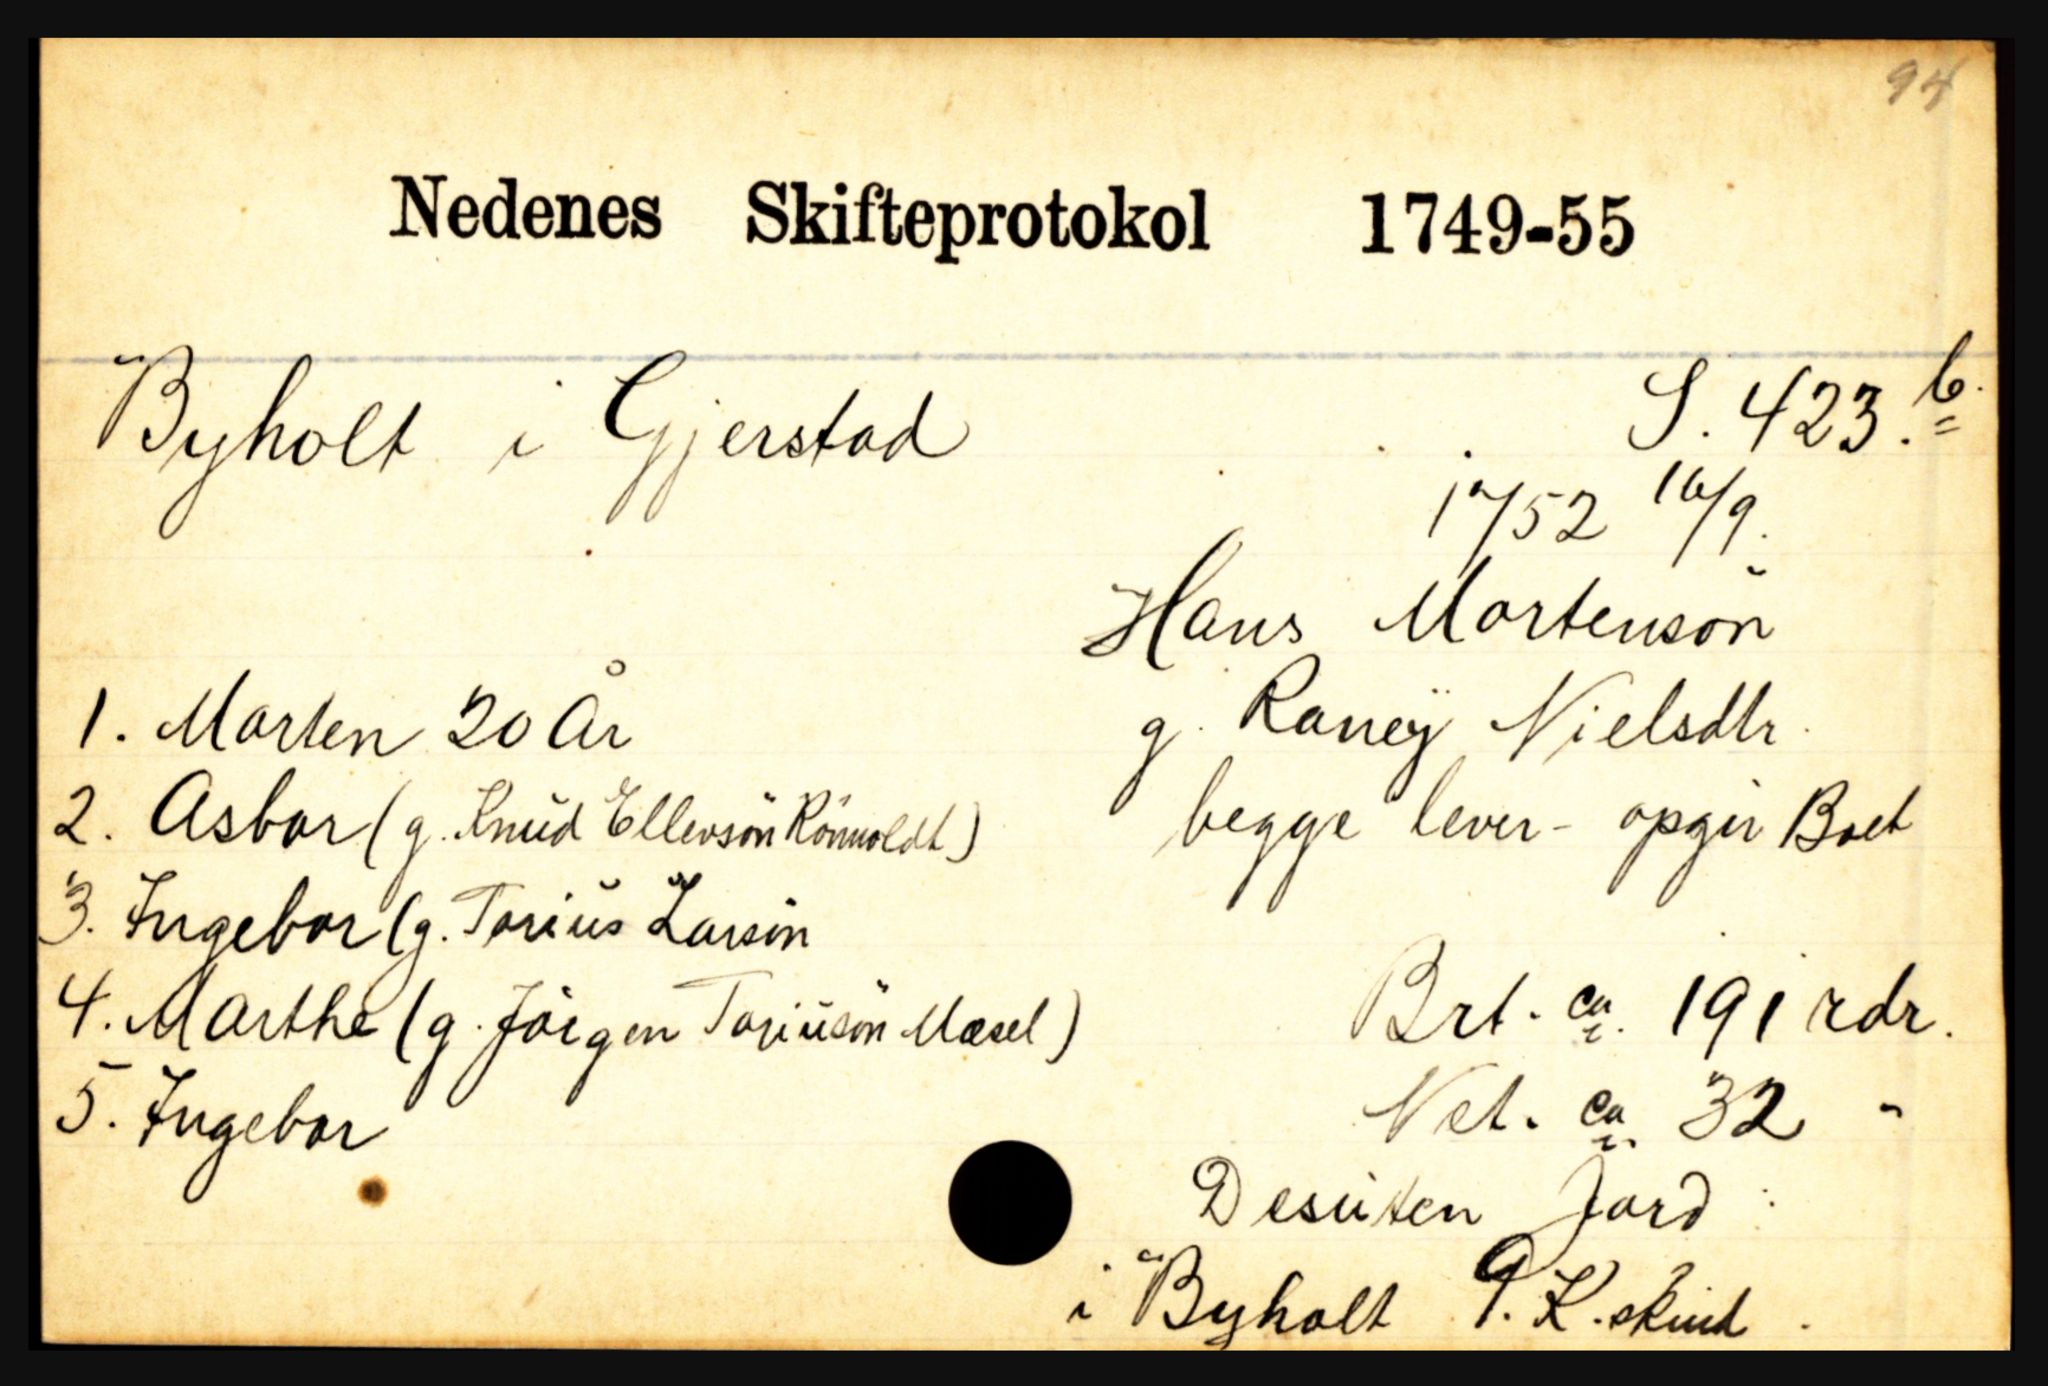 94
Nedenes Skifteprotokol 1749-55
Byholt i Gjerstad
S. 423.b
1752 16/9.
Hans Mortensön
g. Raneÿ Nielsdtr.
begge lever - opgir Boet
1. Morten 20 År
2. Asbor (g. Knud Ellevsön Rönnoldt)
3. Ingebor (g. Tarius Larsön
4. Marthe (g. Jörgen Tariusön Mæsel)
5. Ingebor
Brt. ca. 191 rdr.
Net. ca. 32 "
Desuten Jord
i Byholt 9. K. skind.